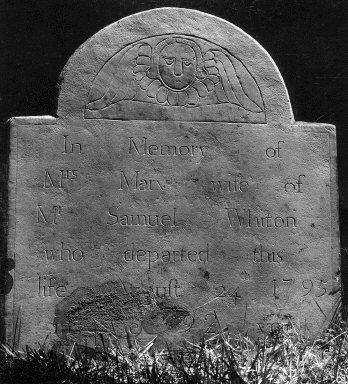 In Memory of
Mrs Mary wife of
Mr Samuel Whiton
who departed this
life August 24th 1795
92